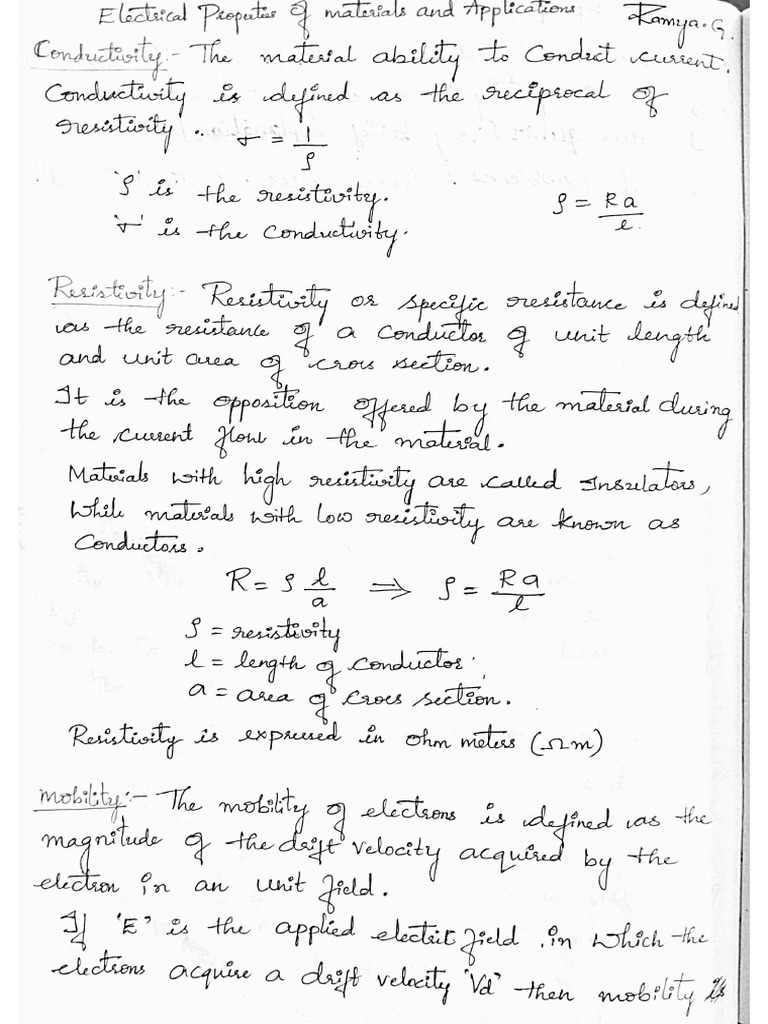 Electrical Properties of materials and Applications Ramya.G.
Conductivity:- The material ability to Conduct current.
Conductivity is defined as the reciprocal of
resistivity .. σ = 1/ρ
'ρ' is the resistivity.
ρ = Ra/l
'σ' is the conductivity.
Resistivity:- Resistivity or specific resistance is defined
as the resistance of a conductor of unit length
and unit area of cross section.
It is the opposition offered by the material during
the current flow in the material.
Materials with high resistivity are called Insulators,
While materials with low resistivity are known as
Conductors.
R = ρ l/a ⇒ ρ = Ra/l
ρ = resistivity
l = length of conductor
a = area of cross section.
Resistivity is expressed in ohm meters (Ωm)
Mobility:- The mobility of electrons is defined as the
magnitude of the drift velocity acquired by the
electron in an unit field.
If 'E' is the applied electric field in which the
electrons acquire a drift velocity "Vd" then mobility is